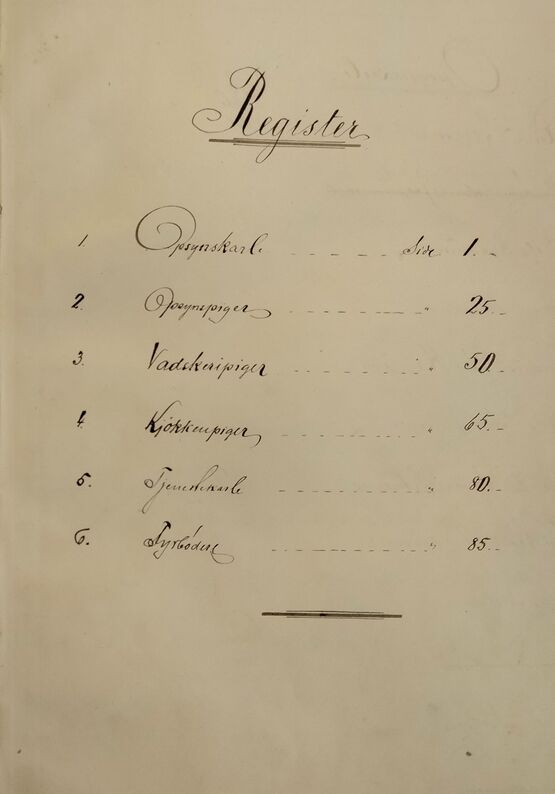 Register
1. Opsynskarle - - - - - - Side 1. -
2. Opsynspiger - - - - - - " 25. -
3. Vadskeripiger - - - - - - " 50 -
4. Kjøkkenpiger - - - - - - " 65. -
5. Tjenestekarle - - - - - - " 80. -
6. Fyrbødere - - - - - - " 85. -